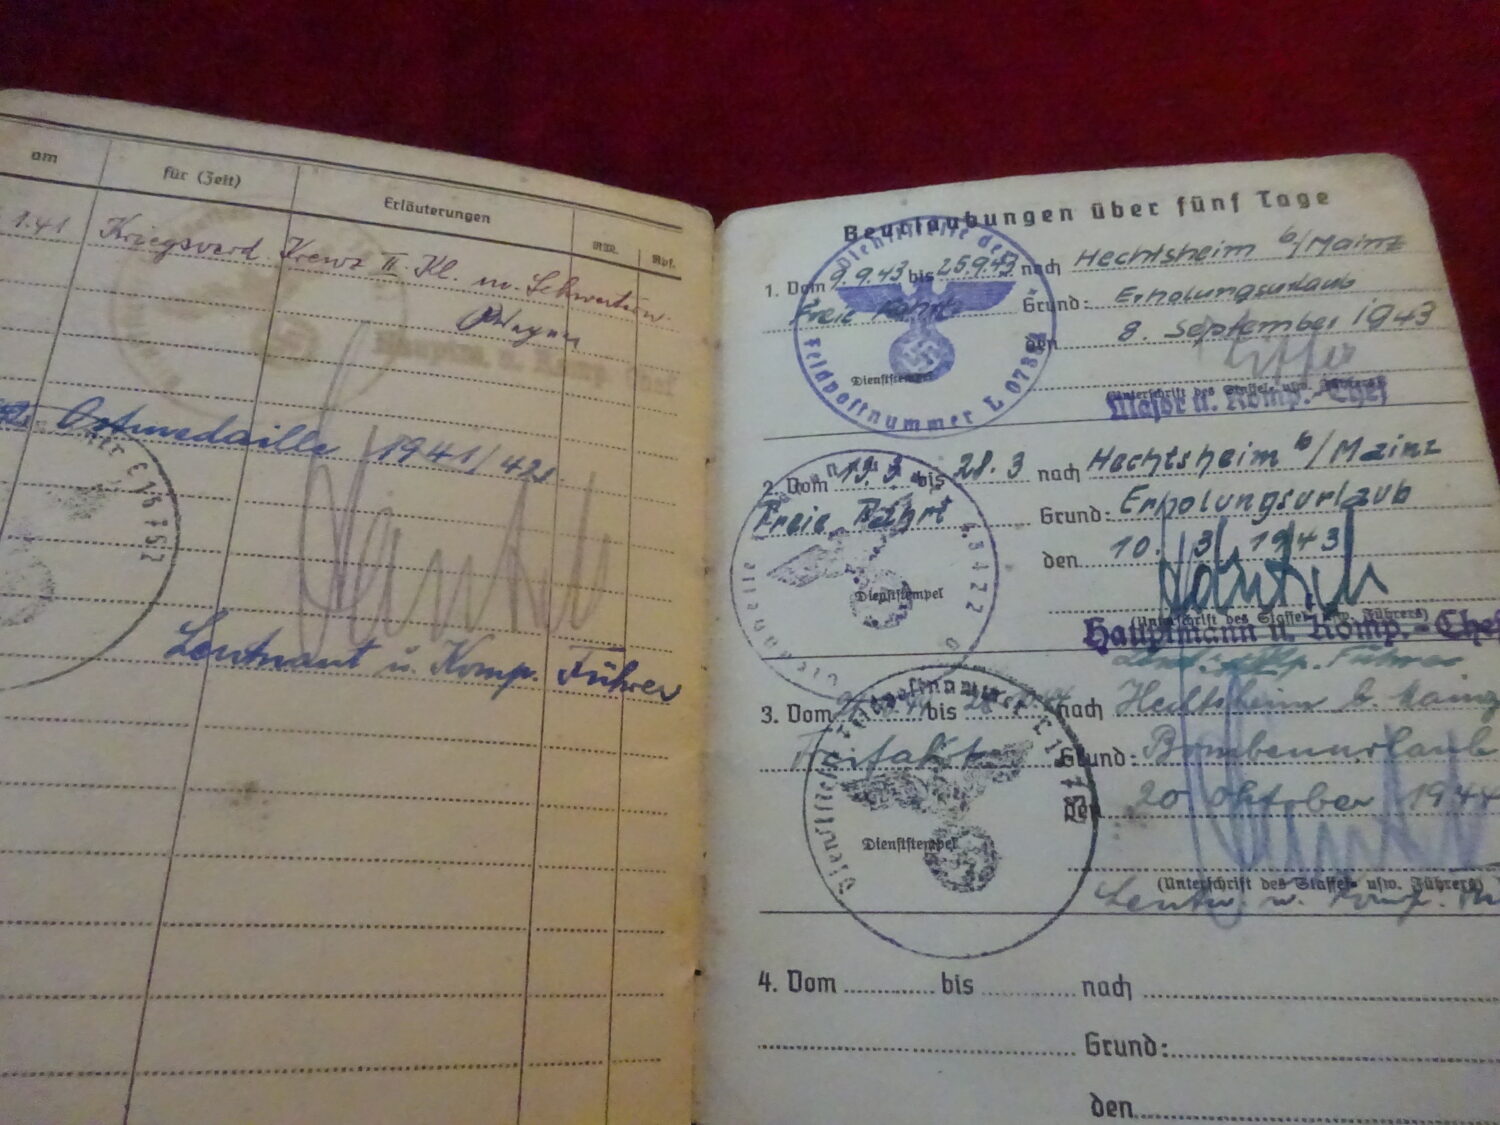 am für (Zeit) Erläuterungen RM. Rpf.
1.41 Kriegsverd. Kreuz II. Kl. m. Schwertern
Wagner
Hauptm. u. Komp. Chef
Ostmedaille 1941/42.
Leutnant u. Komp. Führer
Beurlaubungen über fünf Tage
1. Vom 9.9.43 bis 25.9.43 nach Hechtsheim b/Mainz
Freie Fahrt Grund: Erholungsurlaub
den 8. September 1943
Dienststempel
(Unterschrift des Staffel- usw. Führers)
Major u. Komp.-Chef
Dienststelle der
Feldpostnummer L 073
2. Vom 13.3 bis 28.3 nach Hechtsheim b/Mainz
Freie Fahrt Grund: Erholungsurlaub
den 10. 3. 1943
Dienststempel
(Unterschrift des Staffel- usw. Führers)
Hauptmann u. Komp.-Chef
3. Vom bis nach Hechtsheim b. Mainz
Freifahrt Grund: Bombenurlaub
den 20. Oktober 1944
Dienststempel
(Unterschrift des Staffel- usw. Führers)
Leutn. u. Komp.
4. Vom bis nach
Grund:
den